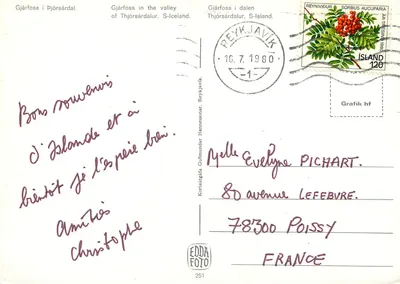 Gjárfoss í Þjórsárdal.
Gjárfoss in the valley
of Thjórsárdalur. S-Iceland.
Gjárfoss i dalen
Thjórsárdalur, S-Island.
REYKJAVÍK
16.7.1980
-1-
REYNIVIÐUR SORBUS AUCUPARIA
ÍSLAND
120
Grafík hf
Bons souvenirs
d'Islande et à
bientôt je l'espère bien.
Amitiés
Christophe
Kortaútgáfa Guðmundar Hannessonar, Reykjavík
Melle Evelyne PICHART.
80 avenue LEFEBVRE.
78300 POISSY
FRANCE
EDDA
FOTO
251